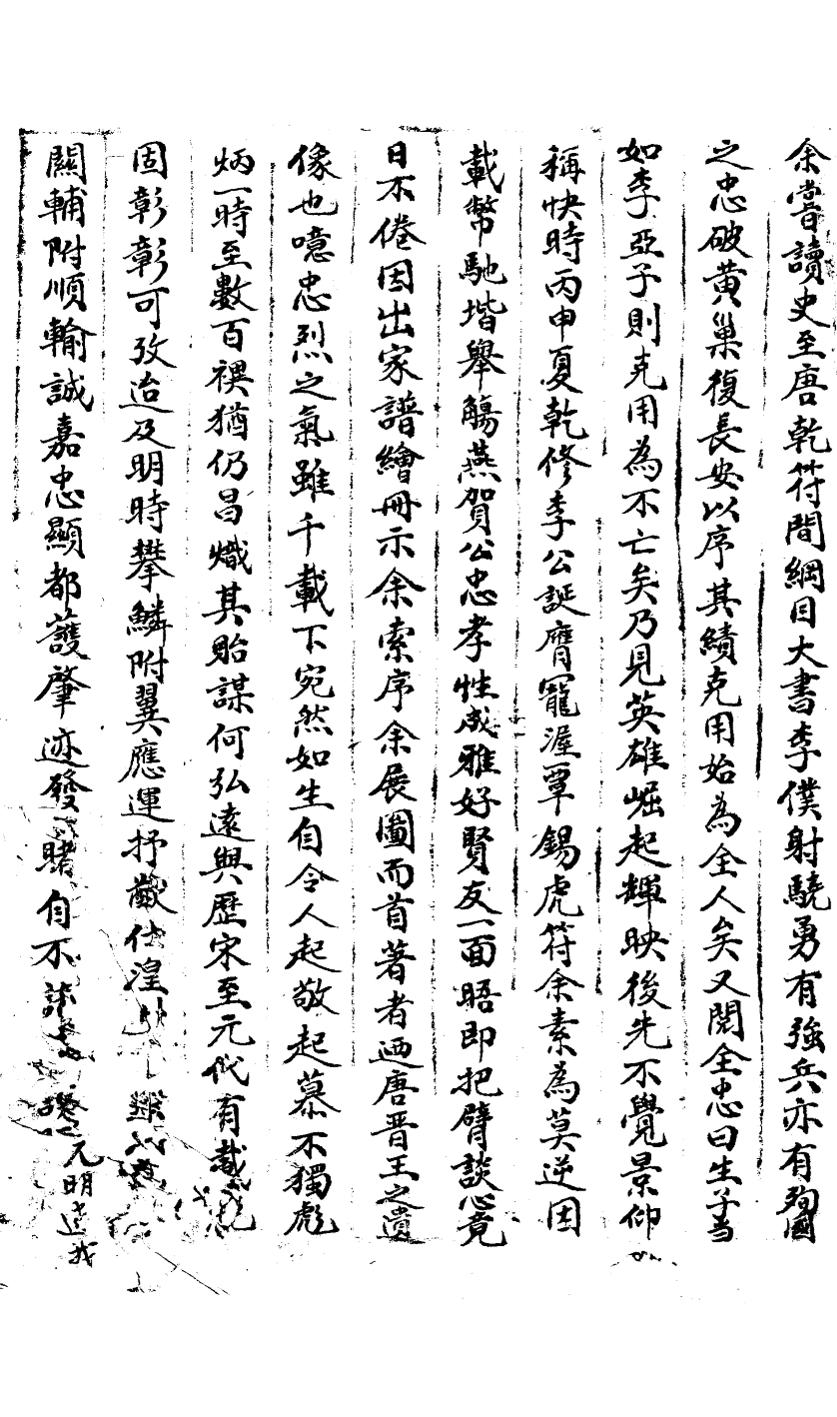 余嘗讀史至唐乾符間綱目大書李僕射驍勇有強兵亦有殉國
之忠破黃巢復長安以序其績克用始為全人矣又閱全忠曰生子當
如李亞子則克用為不亡矣乃見英雄崛起輝映後先不覺景仰
稱快時丙申夏乾修李公誕膺寵渥覃錫虎符余素為莫逆因
載幣馳堦舉觴燕賀公忠孝性成雅好賢友一面晤即把臂談心竟
日不倦因出家譜繪冊示余索序余展圖而首著者迺唐晋王之遺
像也噫忠烈之氣雖千載下宛然如生自令人起敬起慕不獨彪
炳一時至數百禩猶仍昌熾其貽謀何弘遠與歷宋至元代有載
固彰彰可攷迨及明時攀鱗附翼應運抒猷仕湟
關輔附順輸誠嘉忠顯都蒦肇迹發賭自不 元明